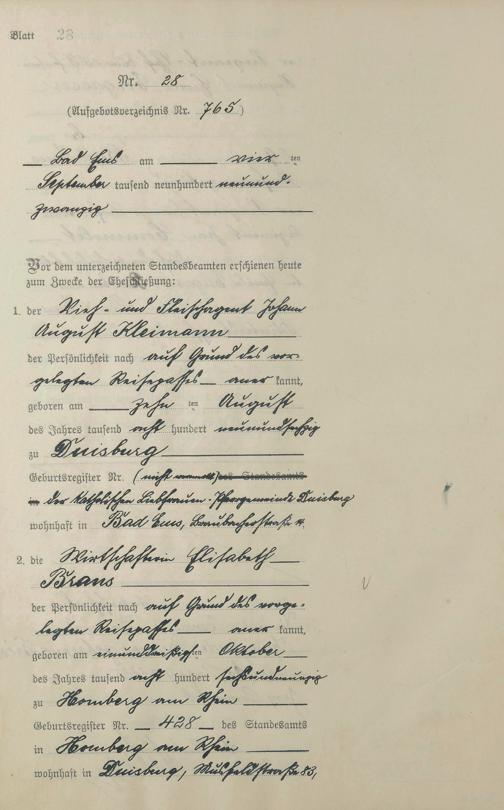 Blatt 28
Nr. 28
(Aufgebotsverzeichnis Nr. 765)
Bad Ems am vier ten
September tausend neunhundert neunund-
zwanzig
Vor dem unterzeichneten Standesbeamten erschienen heute
zum Zwecke der Eheschließung:
1. der Vieh- und Fleischagent Johann
August Kleimann
der Persönlichkeit nach auf Grund des vor-
gelegten Reisepasses aner kannt,
geboren am zehn ten August
des Jahres tausend acht hundert neunundsechzig
zu Duisburg
Geburtsregister Nr. (nicht des Standesamts
in der katholischen Liebfrauen-Pfarrgemeinde Duisburg
wohnhaft in Bad Ems, Braubacherstraße
2. die Wirtschafterin Elisabeth
Brans
der Persönlichkeit nach auf Grund des vorge-
legten Reisepasses aner kannt,
geboren am einunddreißigsten Oktober
des Jahres tausend acht hundert sechsundneunzig
zu Homberg am Rhein
Geburtsregister Nr. 428 des Standesamts
in Homberg am Rhein
wohnhaft in Duisburg, Musfeldstraße 83,